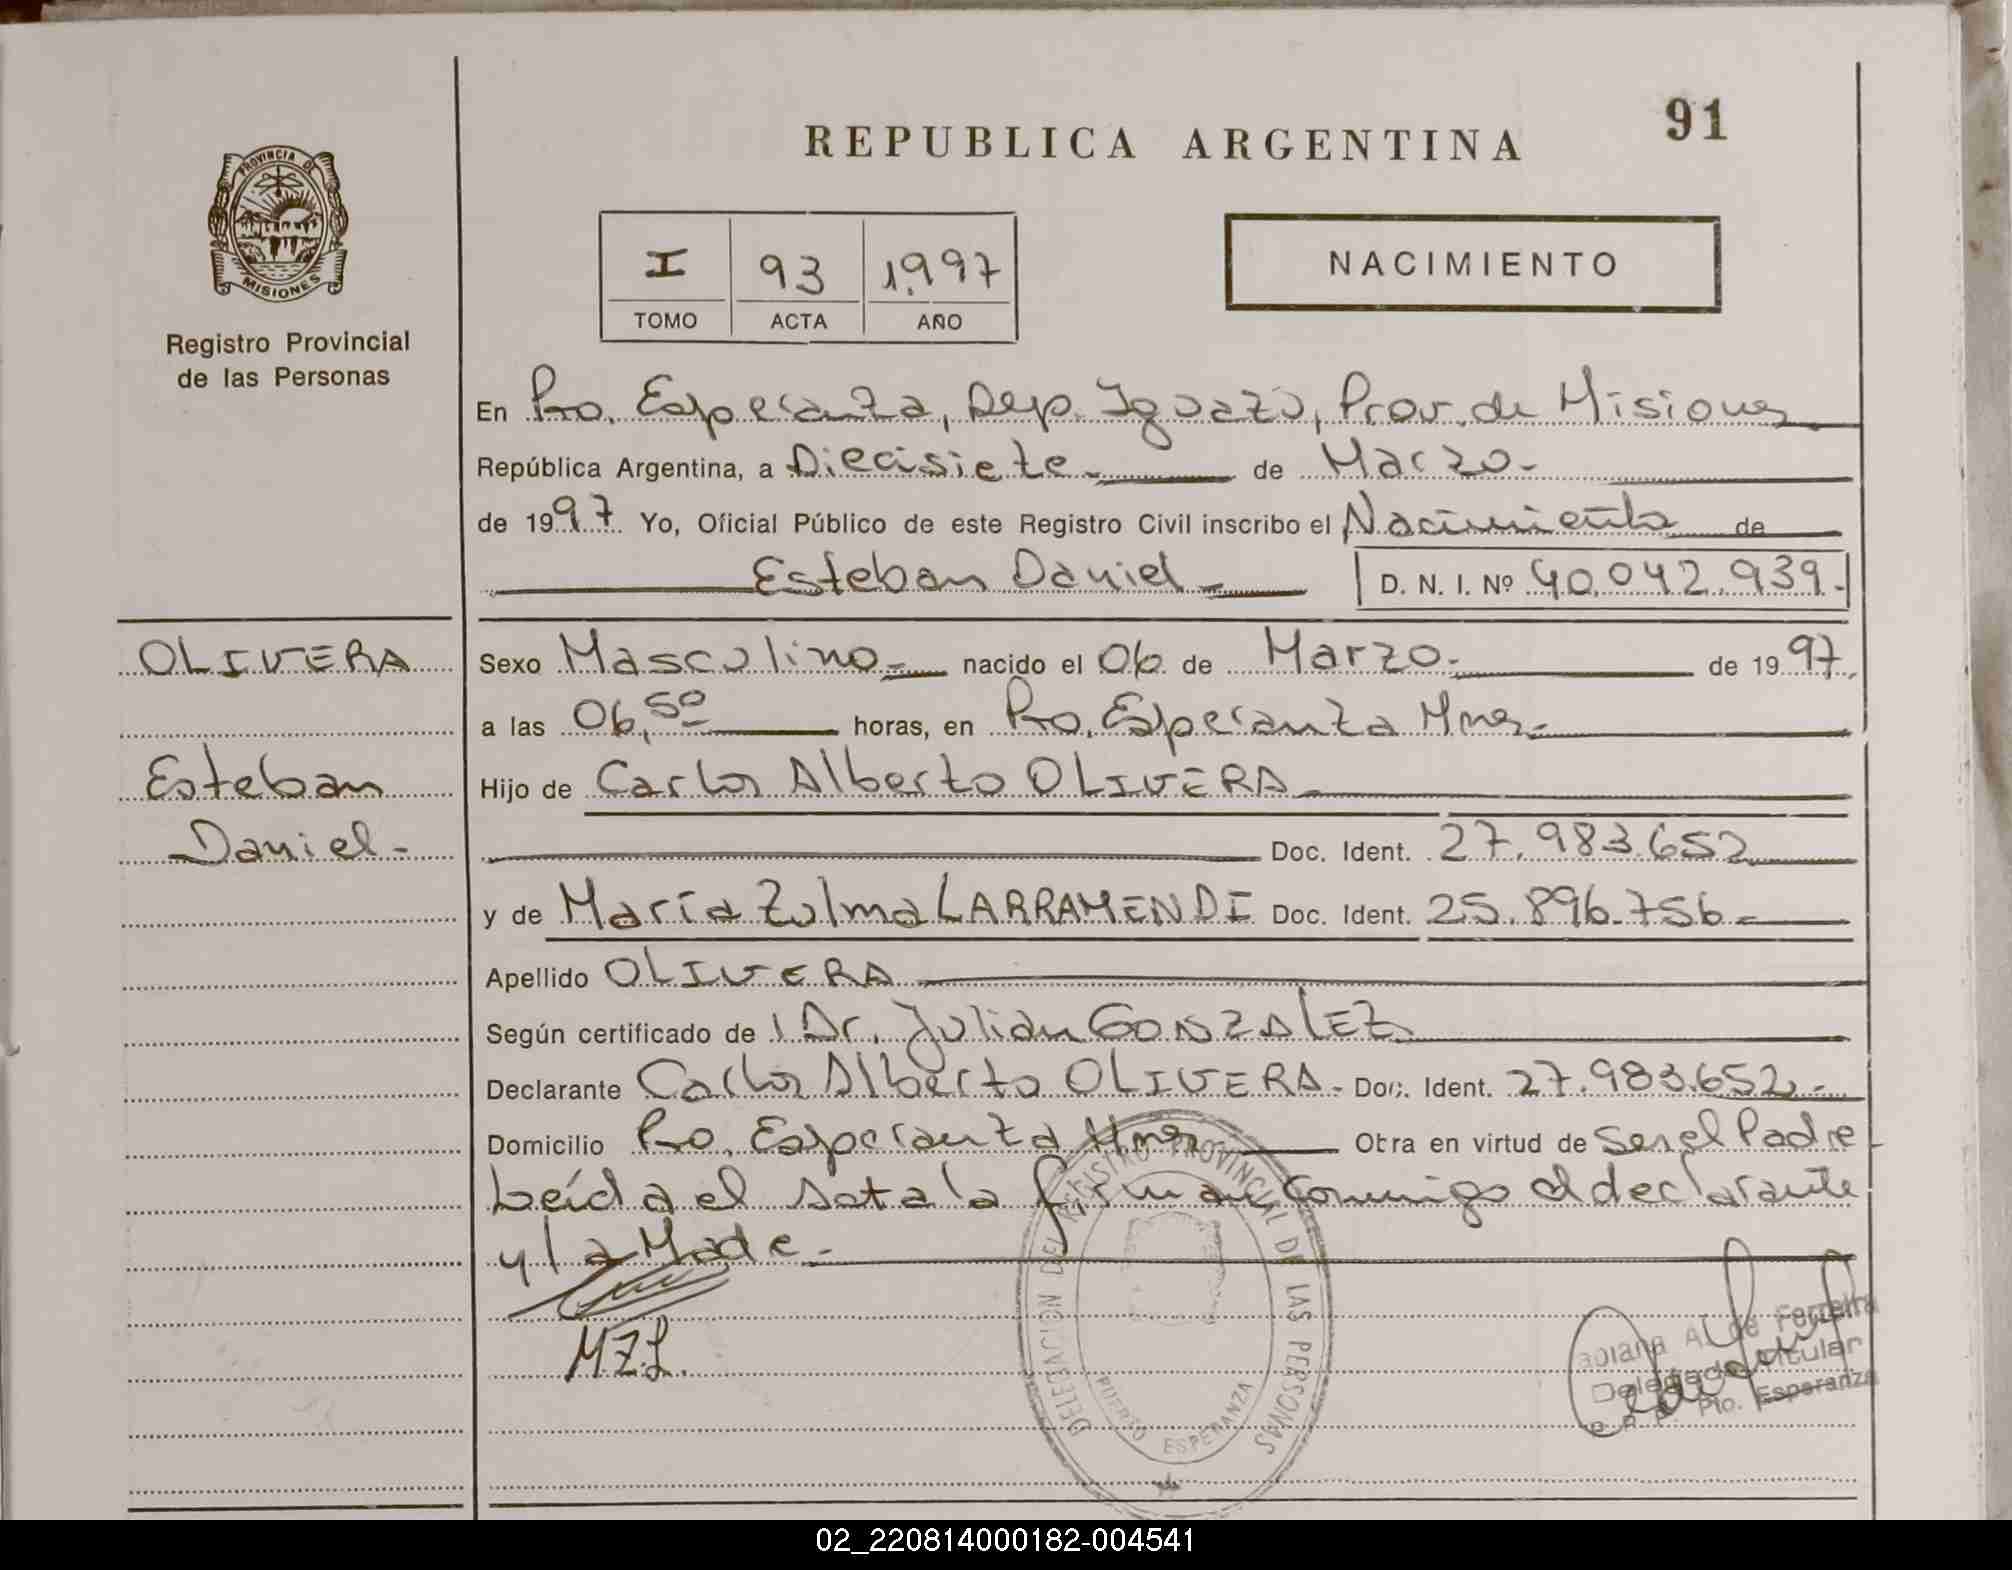 91
REPUBLICA ARGENTINA
PROVINCIA DE
MISIONES
Registro Provincial
de las Personas
I 93 1.997
TOMO ACTA AÑO
NACIMIENTO
En Pto. Esperanza, Dep. Iguazú, Prov. de Misiones
República Argentina, a Diecisiete - de Marzo -
de 1997 Yo, Oficial Público de este Registro Civil inscribo el Nacimiento de
Esteban Daniel - D. N. I. Nº 40.042.939.-
OLIVERA
Esteban
Daniel -
Sexo Masculino - nacido el 06 de Marzo - de 1997
a las 06,50 horas, en Pto. Esperanza Mnes -
Hijo de Carlos Alberto OLIVERA -
Doc. Ident. 27.983.652
y de María Zulma LARRAMENDI Doc. Ident. 25.896.756 -
Apellido OLIVERA
Según certificado de Dr. Julián GONZALEZ
Declarante Carlos Alberto OLIVERA - Doc. Ident. 27.983.652.-
Domicilio Pto. Esperanza Mnes Obra en virtud de ser el Padre
Leída el acta la firman conmigo el declarante
y la Madre. -
M.Z.L.
DELEGACION DEL REGISTRO PROVINCIAL DE LAS PERSONAS
PUERTO ESPERANZA
de Ferreira
Delegada Titular
Pto. Esperanza
02_220814000182-004541